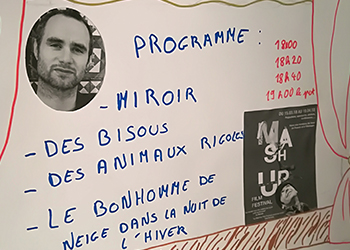 PROGRAMME :
18h00
18h20
18h40
19h00 le pot
- MIROIR
- DES BISOUS
- DES ANIMAUX RIGOLOS
- LE BONHOMME DE
NEIGE DANS LA NUIT DE
L'HIVER
MASH
UP
FILM
FESTIVAL